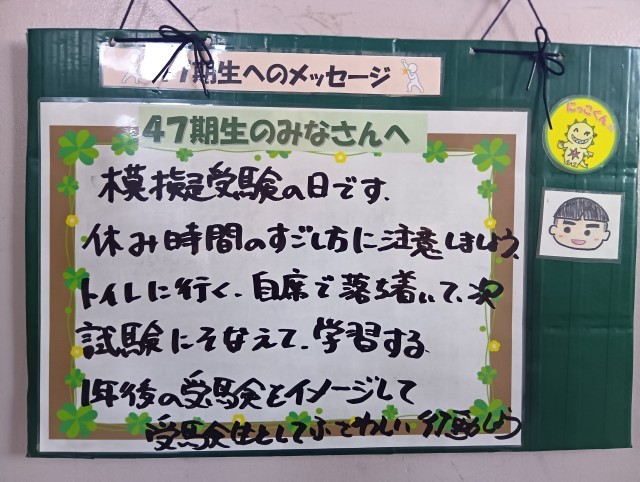 47期生へのメッセージ
にっこくん
47期生のみなさんへ
模擬受験の日です.
休み時間のすごし方に注意しましょう.
トイレに行く、自席で落ち着いて、次
試験にそなえて、学習する.
1年後の受験をイメージして
受験生としてふさわしい行動しよう